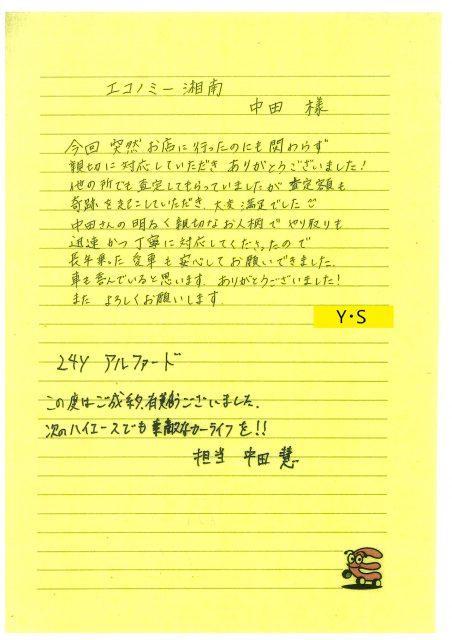 エコノミー湘南
中田 様
今回 突然 お店に行ったのにも関わらず
親切に対応していただき ありがとうございました!
他の所でも査定してもらっていましたが 査定額も
奇跡を起こしていただき、大変満足でした☺
中田さんの明るく親切なお人柄で やり取りも
迅速かつ丁寧に対応してくださったので
長年乗った 愛車も 安心して お願いできました。
車も喜んでいると思います。ありがとうございました!
また よろしくお願いします。
Y・S
24Y アルファード
この度はご成約、有難うございました。
次のハイエースでも素敵なカーライフを!!
担当 中田 慧